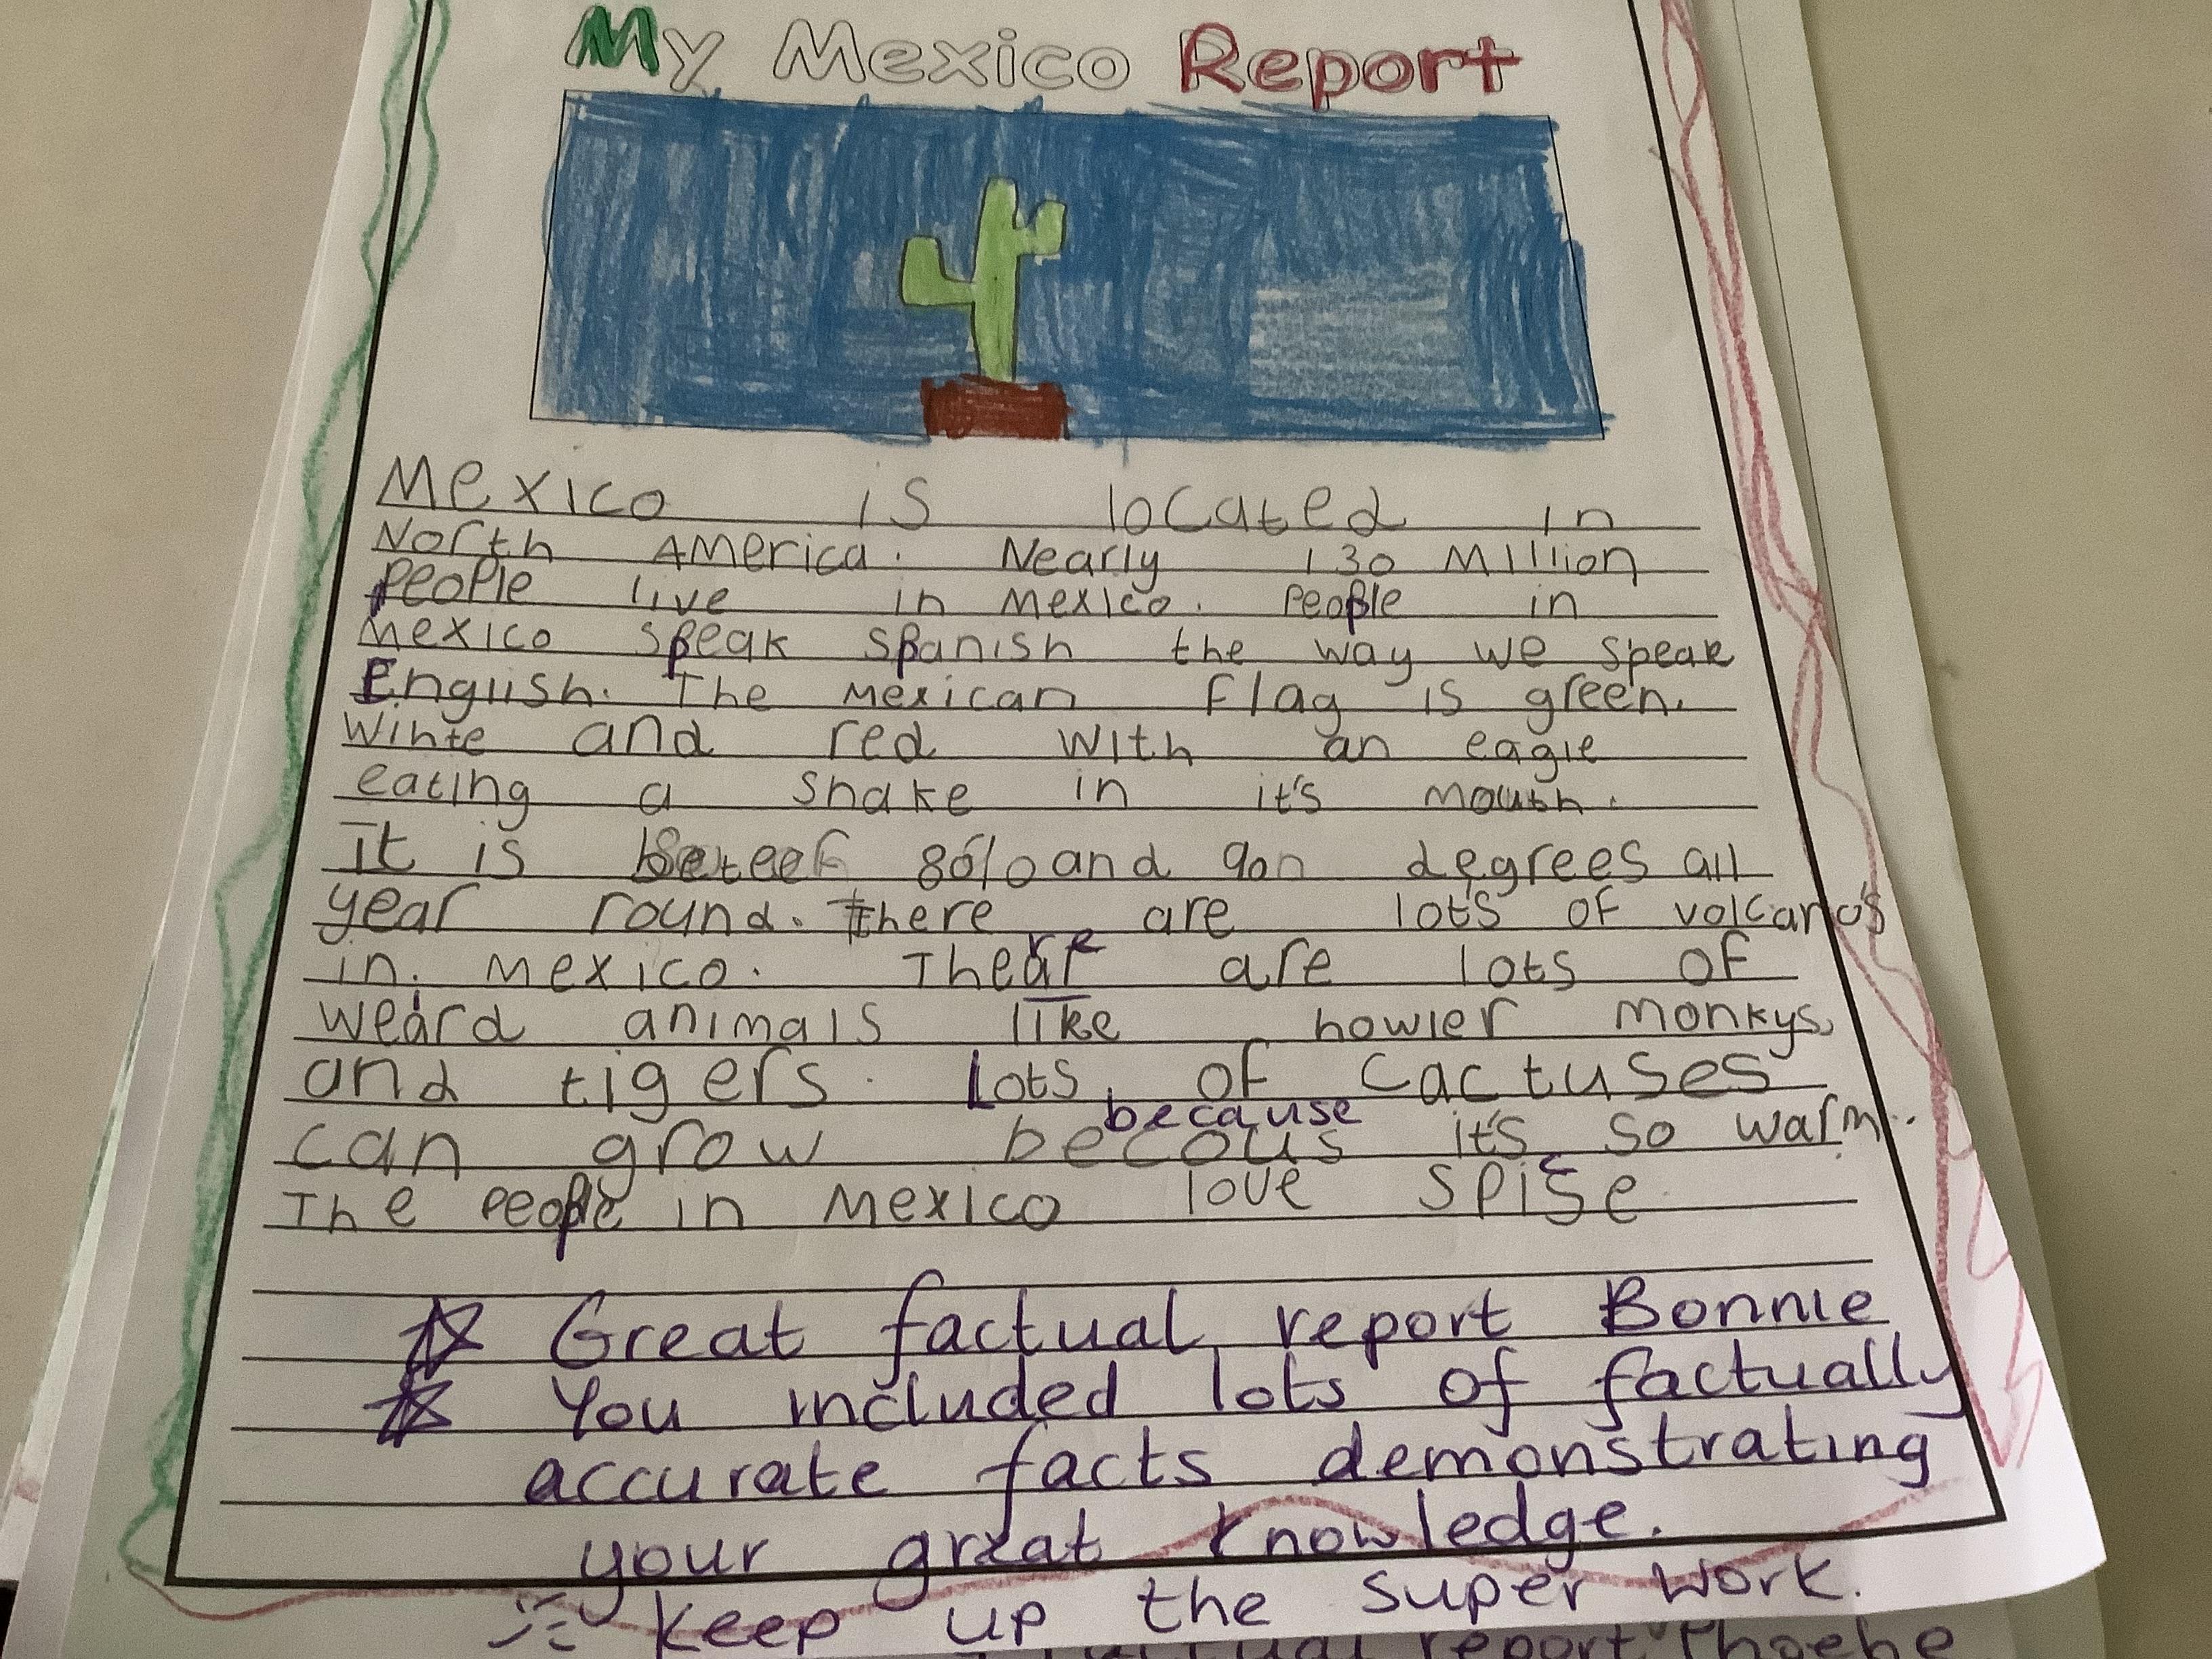 My Mexico Report
Mexico is located in
North America. Nearly 130 Million
people live in Mexico. people in
Mexico speak spanish the way we speak
English. The Mexican Flag is green.
Wihte and red with an eagle
eating a snake in it's mouth.
It is 80 and 90 degrees all
year round. There are lots of volcano's
in. Mexico. There are lots of
weird animals like howler monkys,
and tigers. Lots of cactuses
because
can grow becous it's so warm..
The people in Mexico love spice
Great factual report Bonnie
You included lots of factually
accurate facts demonstrating
your great knowledge.
Keep up the super work.
report Phoebe